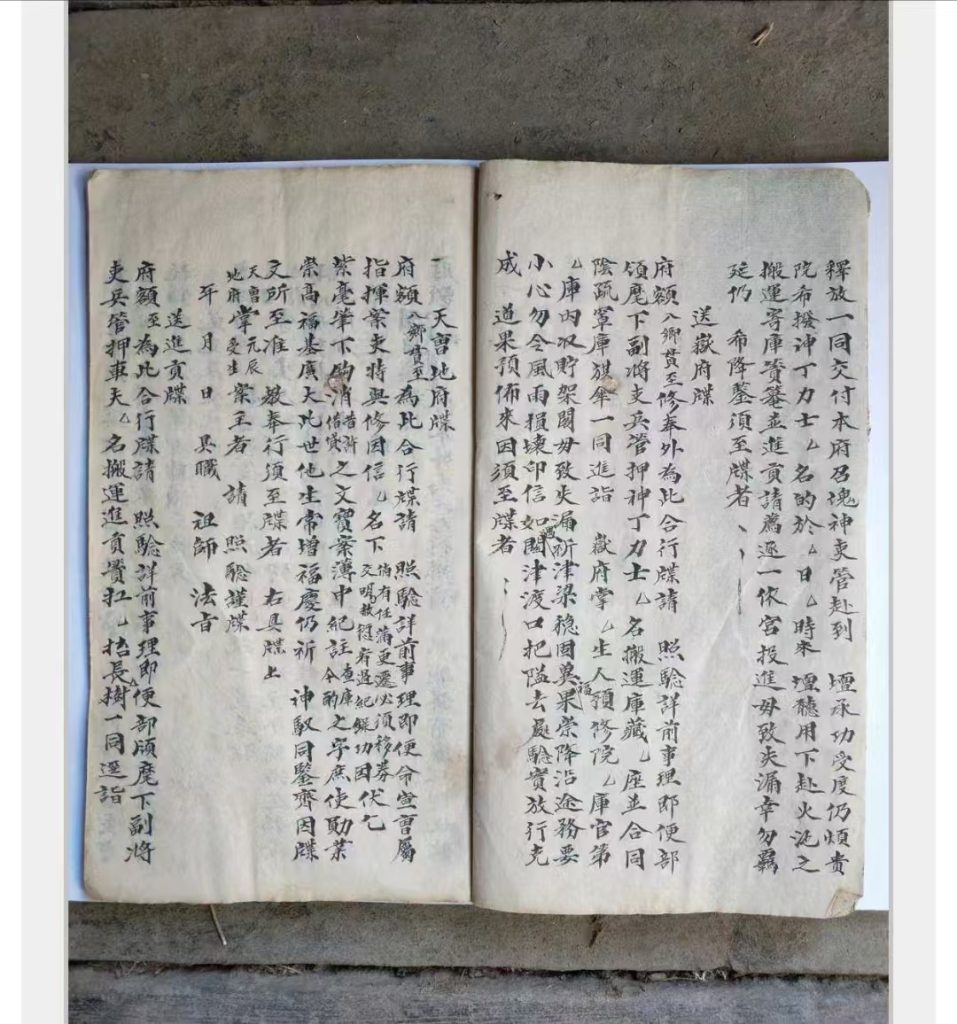 釋放一同交付本府召魂神吏管赴到　壇承功受度仍煩貴
院希撥神丁力士厶名的於厶日厶時來　壇聽用下赴火沁之
搬運寄庫簣篭並進貢請薦逐一依宮投進毋致失漏幸勿羈
延仍　希降鑒須至牒者
送嶽府牒
府額八鄉貫至修奉外為此合行牒請　照驗詳前事理即便部
領麾下副將吏兵管押神丁力士厶名搬運庫藏厶座並合同
陰疏罩庫旗傘一同進詣　嶽府掌厶生人預修院厶庫官第
厶庫內収貯架閣毋致失漏祈津梁穏固冀果福崇降沿途務要
小心勿令風雨損壞印信如遇關津渡口把隘去處驗實放行克
成　道果預佈來因須至牒者
一天曺地府牒
府額八鄉貫至為此合行牒請　照驗詳前事理即便命宣曺屬
指揮案吏特與修因信厶名下倘有任滿更遷必須移劵交明故得有過紀錄功因伏乞
紫毫筆下勾消昔許借貸之文寶案薄中紀註查庫合酌之字庶使勛業
崇高福基廣大此世他生常增福慶仍祈　神馭同鑒齊因牒
文所至准　敕奉行須至牒者　右具牒上
天曹地府掌元辰受生案主者　請　照驗謹牒
年　月　日　具職　祖師　法旨
送進貢牒
府額至為此合行牒請　照驗詳前事理即便部領麾下副將
吏兵管押車夫厶名搬運進貢簣扛厶抬長樹一同逕詣